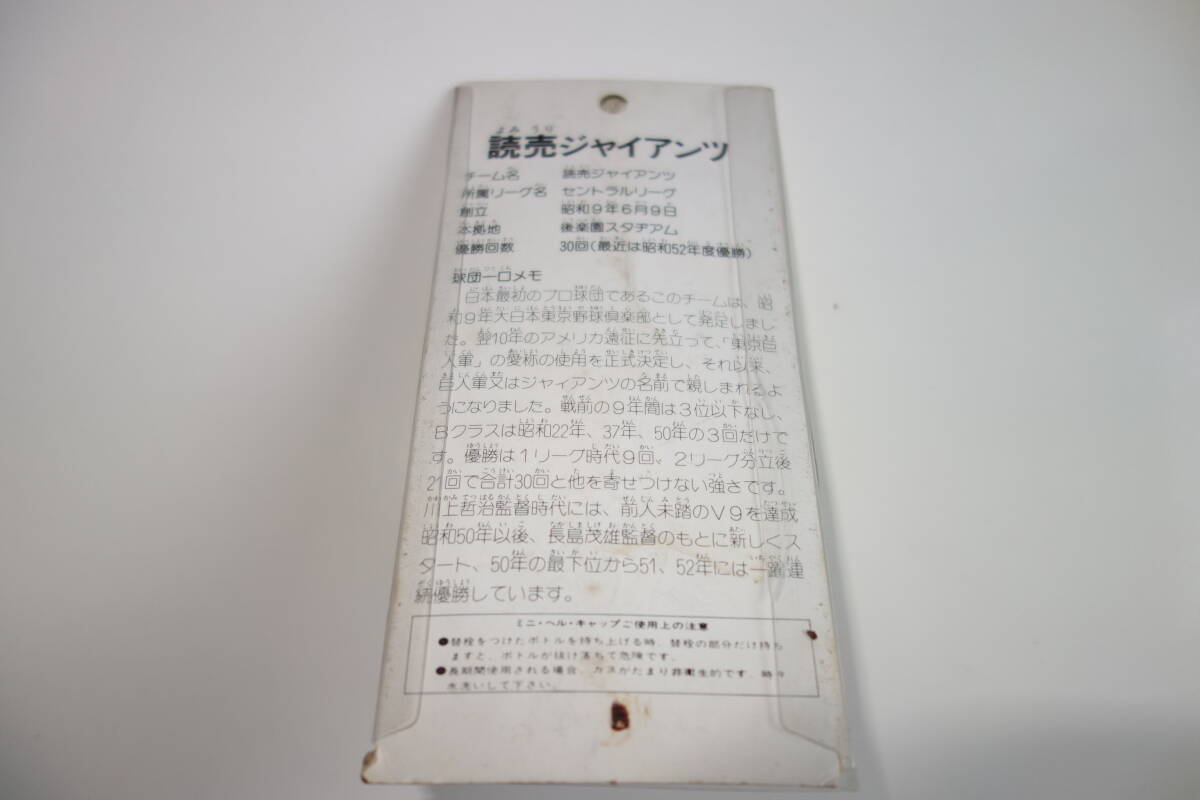 読売ジャイアンツ
チーム名 読売ジャイアンツ
所属リーグ名 セントラルリーグ
創立 昭和9年6月9日
本拠地 後楽園スタヂアム
優勝回数 30回(最近は昭和52年度優勝)
球団一口メモ
日本最初のプロ球団であるこのチームは、昭
和9年大日本東京野球倶楽部として発足しまし
た。翌10年のアメリカ遠征に先立って、「東京巨
人軍」の愛称の使用を正式決定し、それ以来、
巨人軍又はジャィアンツの名前で親しまれるよ
うになりました。戦前の9年間は3位以下なし、
Bクラスは昭和22年、37年、50年の3回だけで
す。優勝は1リーグ時代9回、2リーグ分立後
21回で合計30回と他を寄せつけない強さです。
川上哲治監督時代には、前人未踏のV9を達成
昭和50年以後、長島茂雄監督のもとに新しくス
タート、50年の最下位から51、52年には一躍連
続優勝しています。
ミニ・ヘル・キャップご使用上の注意
●替栓をつけたボトルを持ち上げる時、替栓の部分だけ持ち
ますと、ボトルが抜け落ちて危険です。
●長期間使用される場合、カスがたまり非衛生的です、時々
水洗いして下さい。